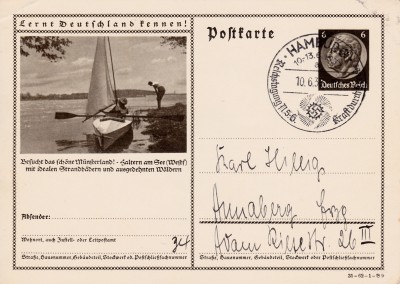 Lernt Deutschland kennen!
Postkarte
6 6
Deutsches Reich
HAMBURG
10.6.3
Reichstagung N.S.G. Kraft durch
Besucht das schöne Münsterland! - Haltern am See (Westf)
mit idealen Strandbädern und ausgedehnten Wäldern
Absender:
Wohnort, auch Zustell- oder Leitpostamt
34
Straße, Hausnummer, Gebäudeteil, Stockwerk od. Postschließfachnummer
Karl
Annaberg Erzg
Adam Riese Str. 26 III
Straße, Hausnummer, Gebäudeteil, Stockwerk oder Postschließfachnummer